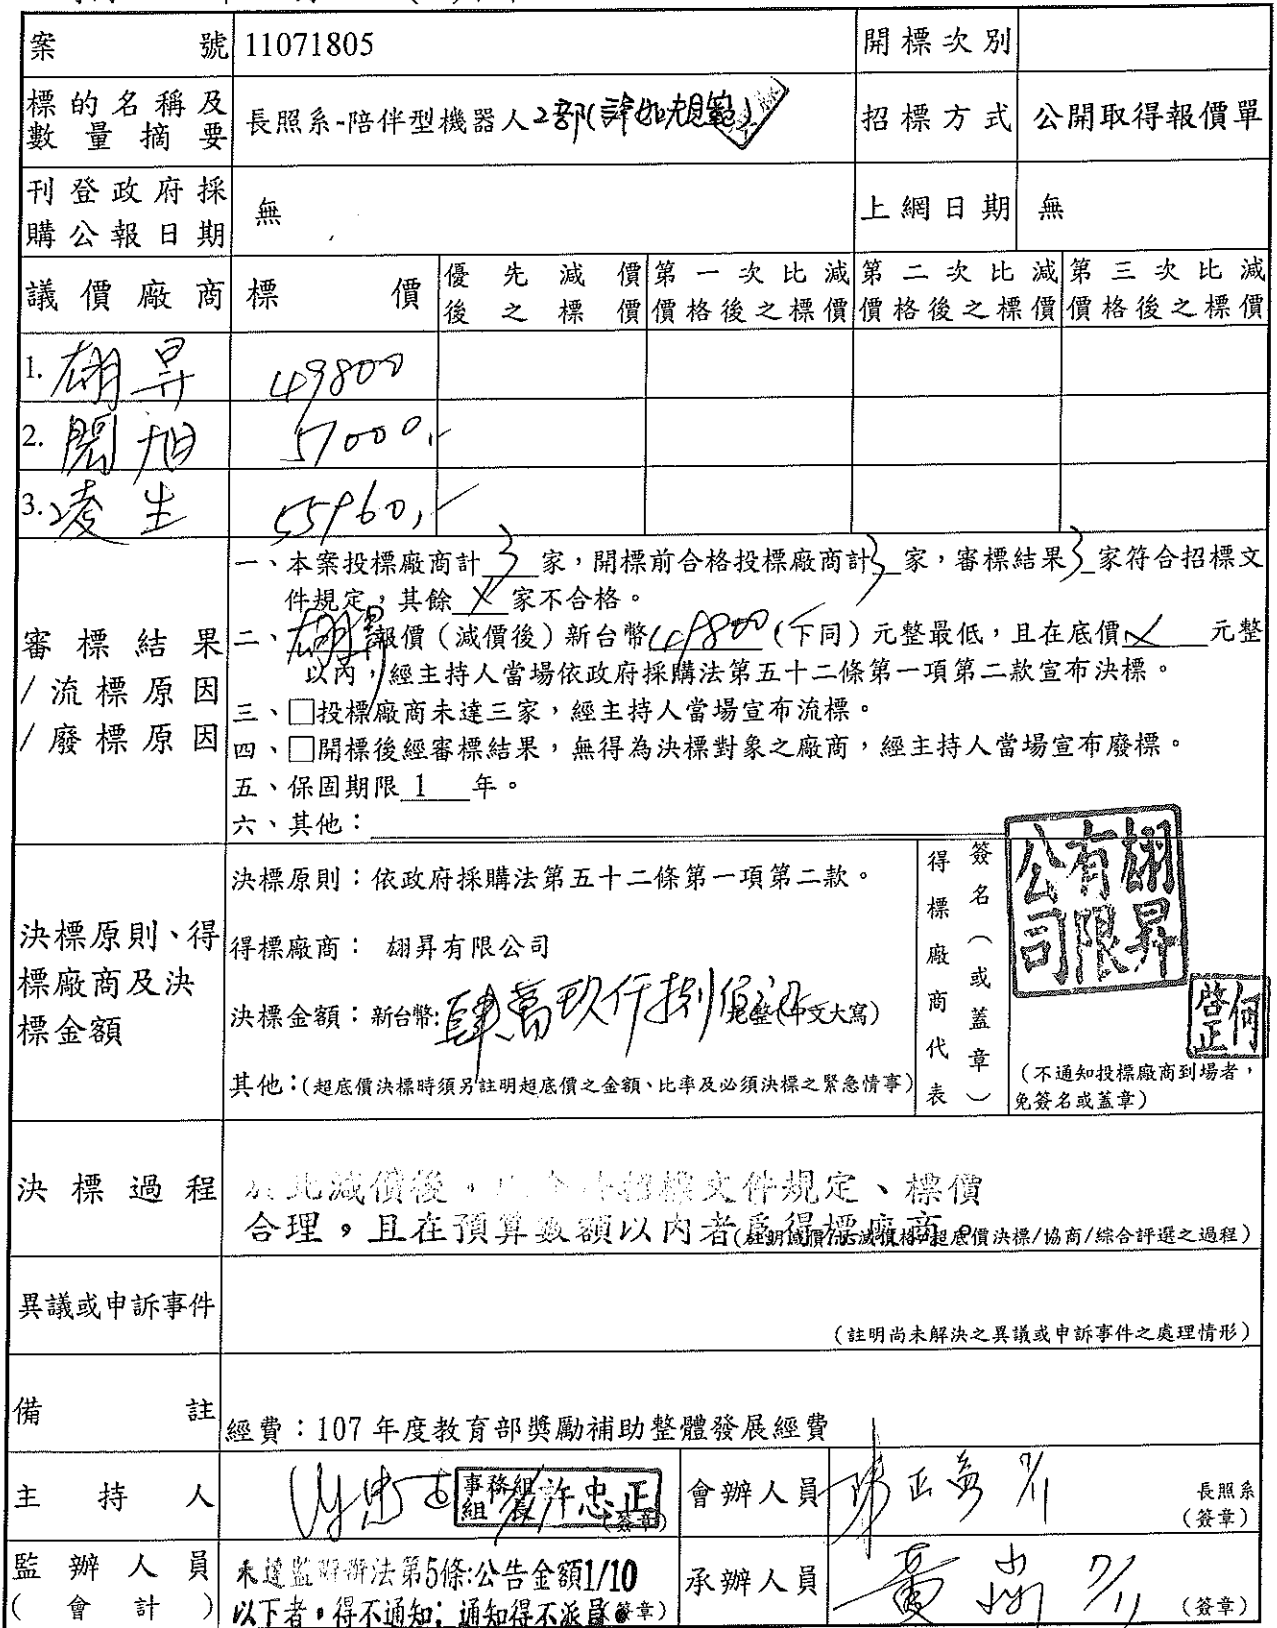 案號 11071805 開標次別
標的名稱及數量摘要 長照系-陪伴型機器人2部(詳如規範) 招標方式 公開取得報價單
刊登政府採購公報日期 無 上網日期 無
議價廠商 標價 優先減價後之標價 第一次比減價格後之標價 第二次比減價格後之標價 第三次比減價格後之標價
1. 翃昇 49800
2. 旭 57000,-
3. 凌生 55960,-
審標結果/流標原因/廢標原因
一、本案投標廠商計 3 家,開標前合格投標廠商計 3 家,審標結果 3 家符合招標文
件規定,其餘 X 家不合格。
二、翃昇 報價(減價後)新台幣 49800 (下同)元整最低,且在底價 X 元整
以內,經主持人當場依政府採購法第五十二條第一項第二款宣布決標。
三、□投標廠商未達三家,經主持人當場宣布流標。
四、□開標後經審標結果,無得為決標對象之廠商,經主持人當場宣布廢標。
五、保固期限 1 年。
六、其他:
決標原則、得標廠商及決標金額
決標原則:依政府採購法第五十二條第一項第二款。
得標廠商: 翃昇有限公司
決標金額:新台幣:肆萬玖仟捌佰元整(中文大寫)
其他:(超底價決標時須另註明超底價之金額、比率及必須決標之緊急情事)
得標廠商代表
簽名(或蓋章)
翃昇有限公司
何啓正
(不通知投標廠商到場者,
免簽名或蓋章)
決標過程
比減價後, 招標文件規定、標價
合理,且在預算數額以內者為得標廠商。
超底價決標/協商/綜合評選之過程)
異議或申訴事件
(註明尚未解決之異議或申訴事件之處理情形)
備註
經費:107 年度教育部獎勵補助整體發展經費
主持人 許忠正 事務組組長 許忠正 (簽章) 會辦人員 陳正 7/11 長照系(簽章)
監辦人員(會計) 未達監辦辦法第5條:公告金額1/10
以下者。得不通知;通知得不派員。(簽章)
承辦人員 黃 7/11 (簽章)